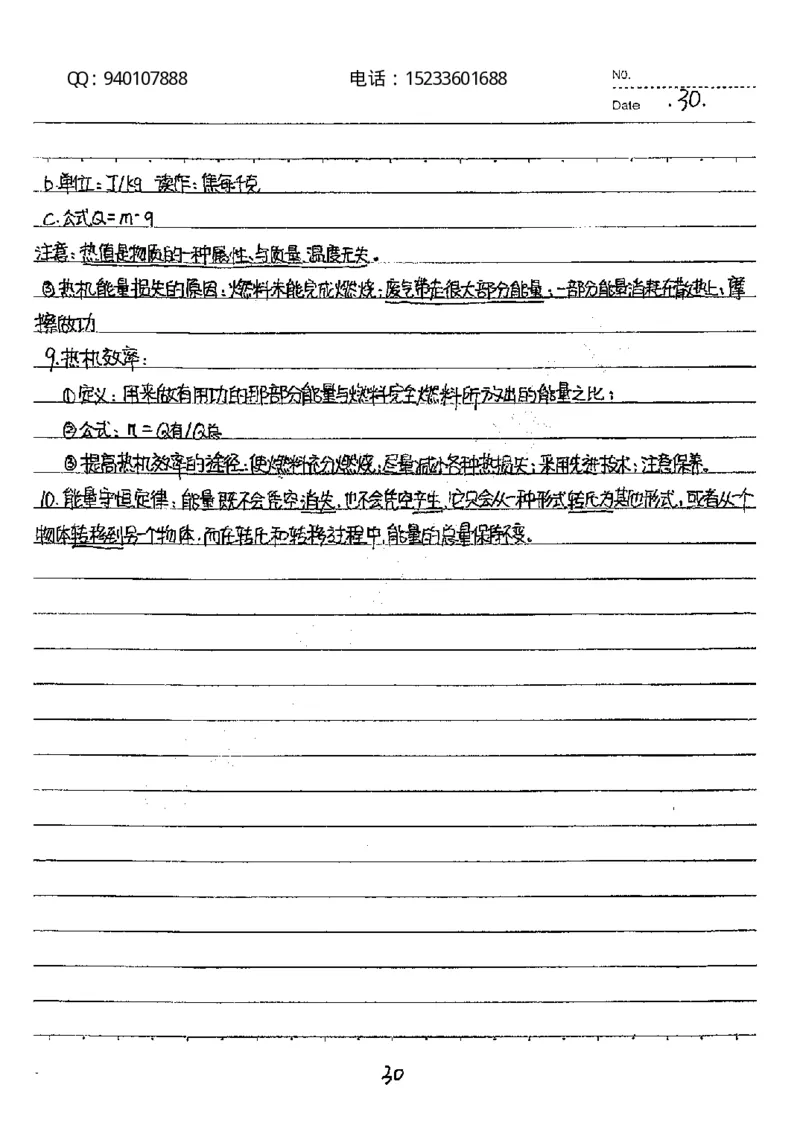 QQ：940107888 电话：15233601688 NO.
Date .30.
b.单位：J/kg 读作：焦每千克
c.公式Q=m·q
注意：热值是物质的一种属性、与质量、温度无失。
③热机能量损失的原因：燃料未能完成燃烧；废气带走很大部分能量；一部分能量消耗在散热上；摩
擦做功
9.热机效率：
①定义：用来做有用功的那部分能量与燃料完全燃料所放出的能量之比；
②公式：η=Q有/Q总
③提高热机效率的途径：使燃料充分燃烧；尽量减小各种热损失；采用先进技术；注意保养。
10.能量守恒定律：能量既不会凭空消失，也不会凭空产生，它只会从一种形式转化为其他形式，或者从个
物体转移到另一个物体，而在转化和转移过程中，能量的总量保持不变。
30